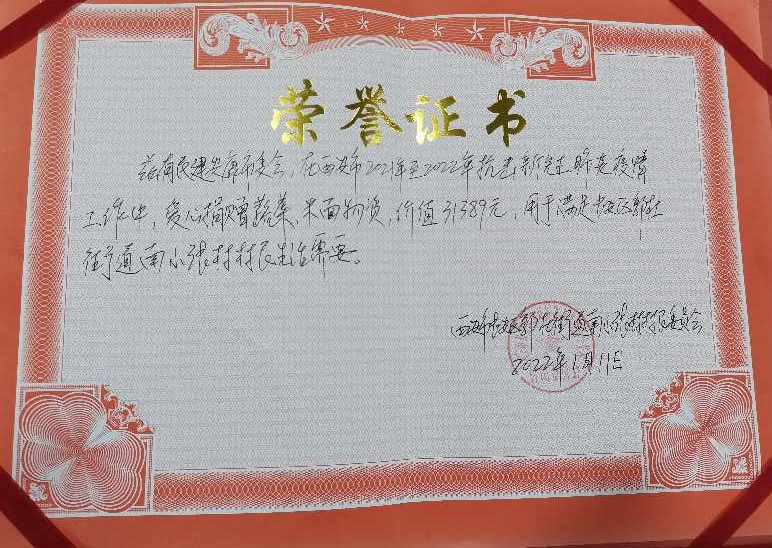 荣誉证书
兹有民建安康市委会，在西安市2021年至2022年抗击新冠肺炎疫情
工作中，爱心捐赠蔬菜、米面物资，价值31389元，用于满足长安区郭杜
街道南小张村村民生活需要。
西安市长安区郭杜街道南小张村村民委员会
2022年1月11日